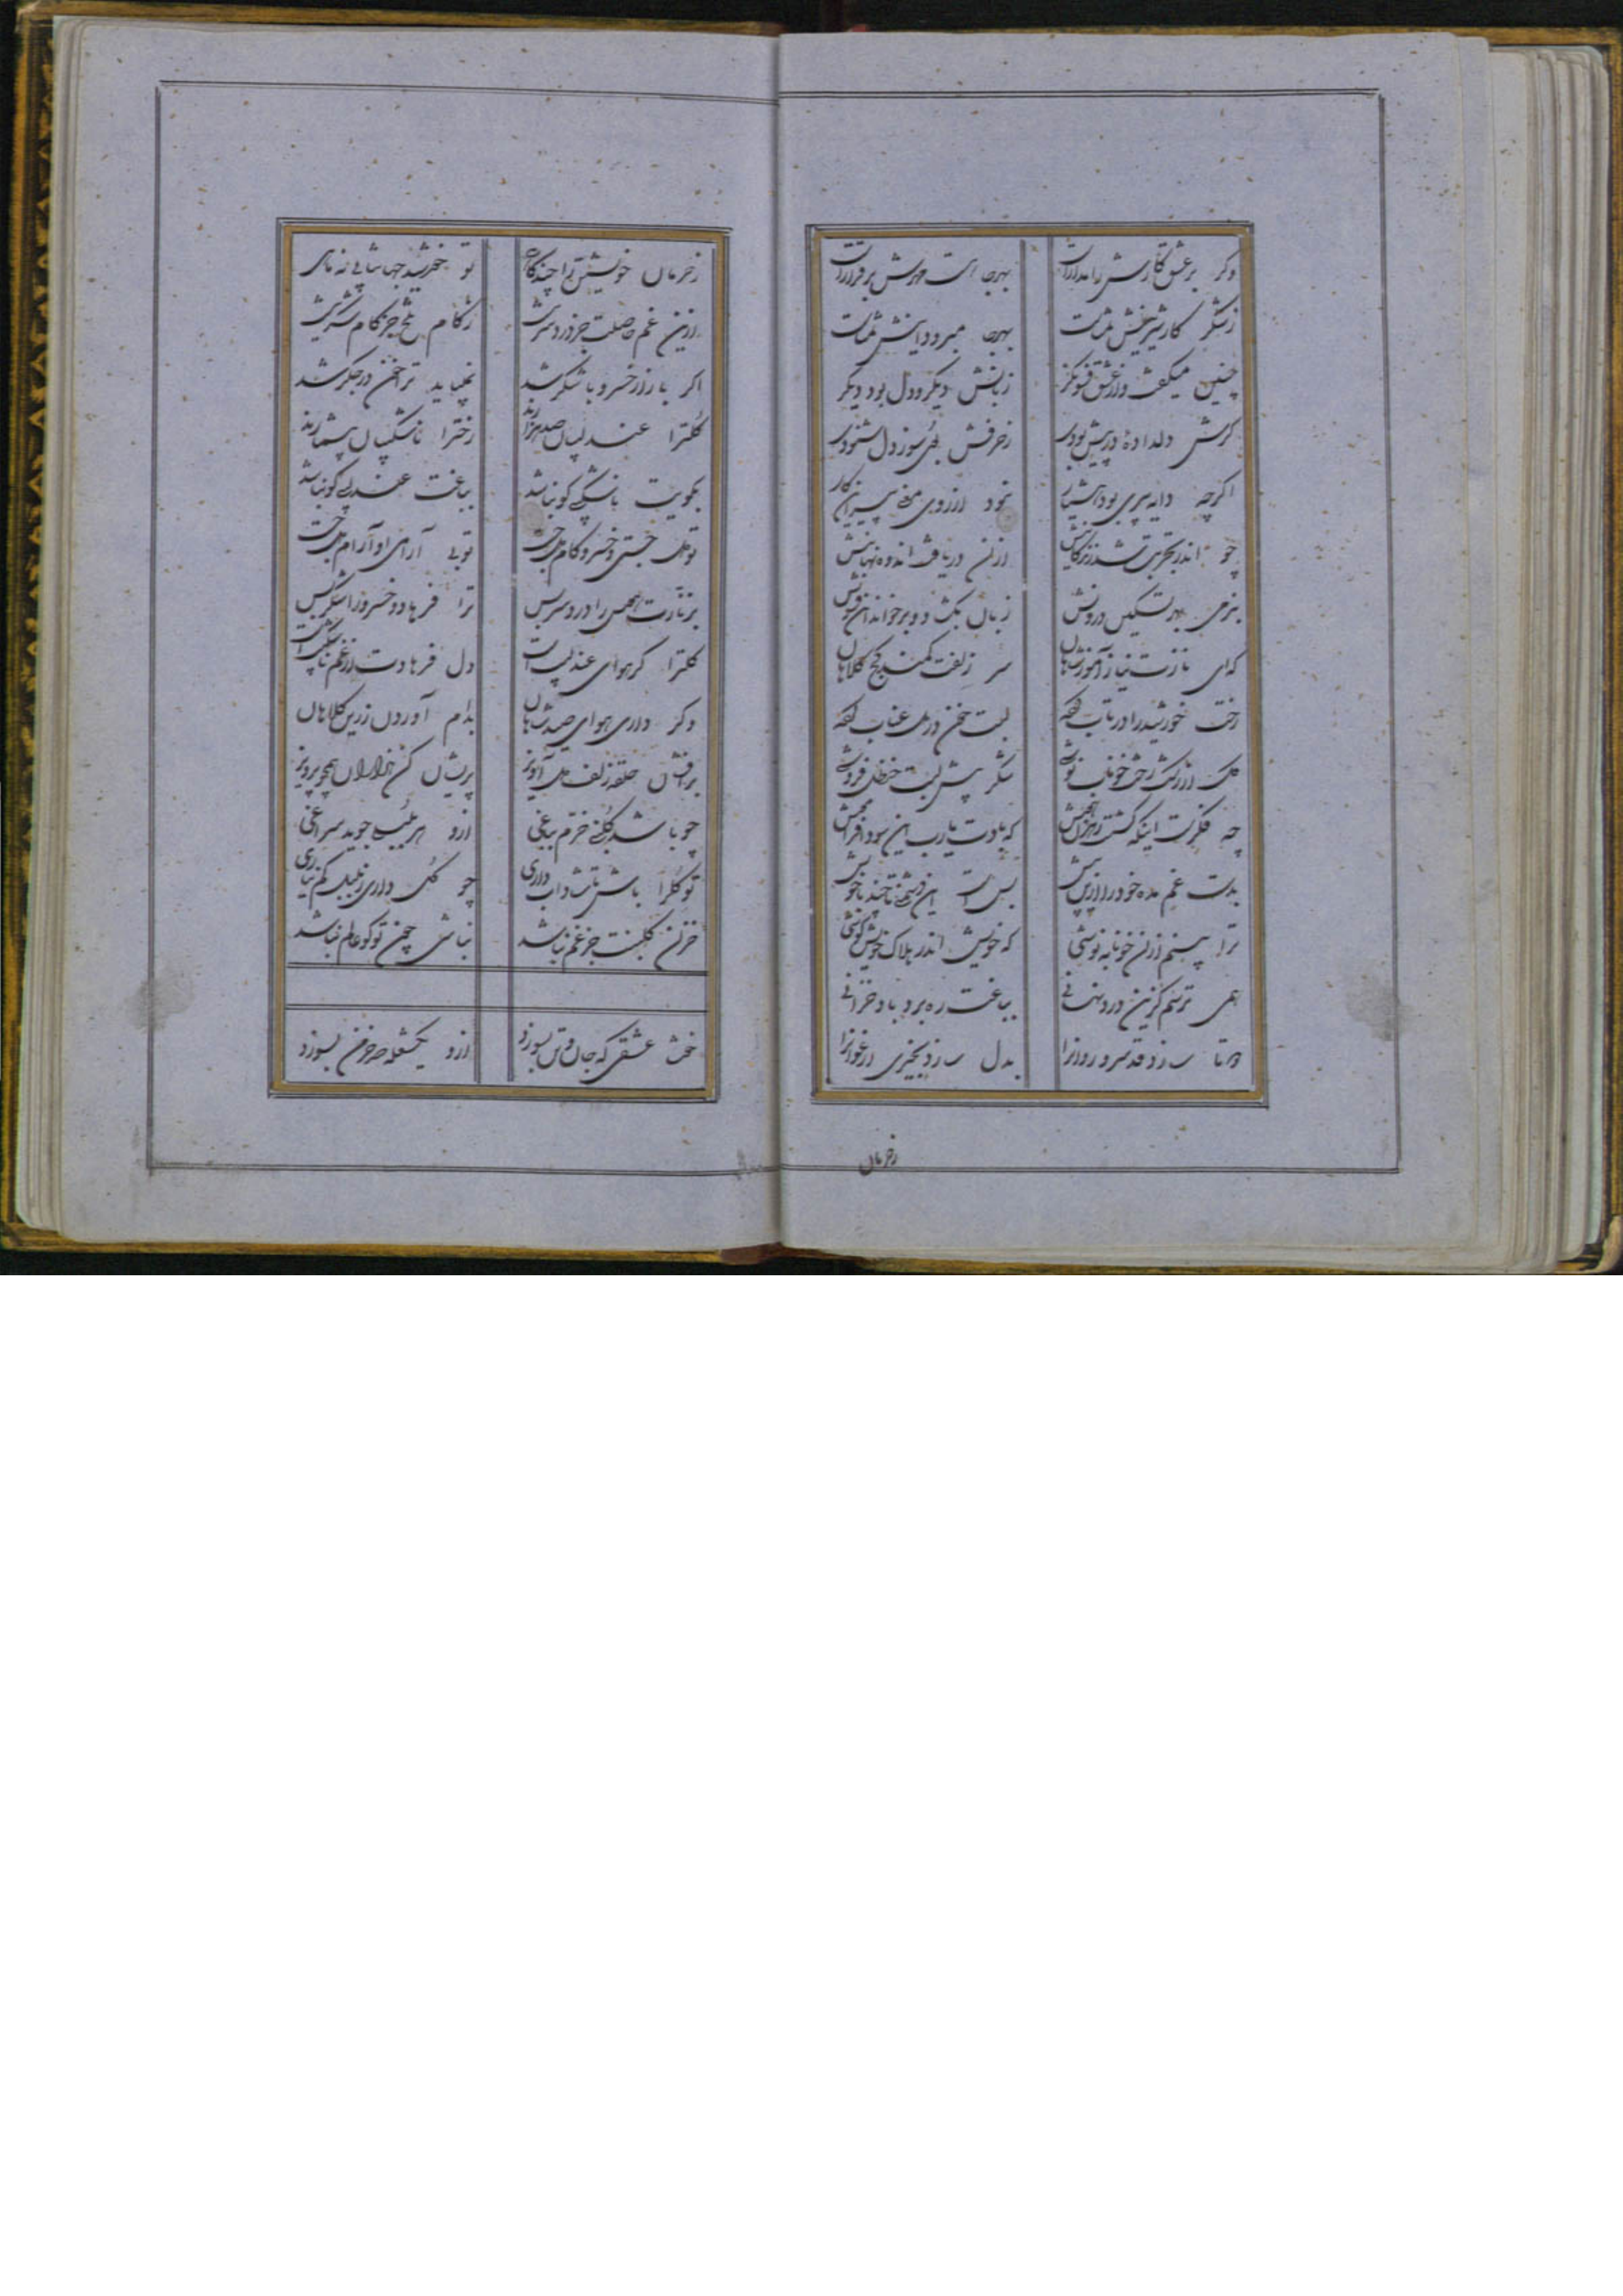 وکر بر عشق کارش را مدارات بهرجا هست مهرش برقرارات
ز شکر کار شیرینش بدانست بهرجا میرود دانش بدانست
چنین میکفت و از عشق فسونکر زبانش دیکر و دل بود دیکر
کرش دلدادهٔ در پیش بودی ز حرفش بوی سوز دل شنودی
اکرچه دایه پیری بود هشیار نبود از روی معنی پیر این کار
چو اندر تجربت شد زندکانیش ازان دریافت اندوه نهانیش
بنرمی بهر تسکین درونش زبان بکشاد و برخواند آن فسونش
که ای نازت نیاز آموز شاهان سر زلفت کمند کج کلاهان
رخت خورشید را در تاب کرده لبت خون در دل عناب کرده
ملک از رشک رخت خوناب نوشی شکر پیش لبت حنظل فروشی
چه فکرست اینکه کشتی رهزن هوش که بادت یارب این سودا فراموش
بدست غم مده خود را ازین بیش بس است این دشمنی تا چند با خویش
ترا بینم ازان خونابه نوشی که خویش اندر هلاک خویش کوشی
همی ترسم کزین درد نهانی بباغت ره برد باد خزانی
مها تا سازد قد سرو روانرا بدل سازد بخیری ارغوانرا
زخرمان
زخرمان خویشتن را چند کاهی تو خورشید جهانتابی نه ماهی
ازین غم حاصلت جز دردسر نیست ز کام تلخ جز کام شکر نیست
اکر با راز خسرو با شکر شد نمیباید ترا خون در جکر شد
کلترا عندلیبان صد هزارند رخترا ناشکیبان بیشمارند
بکویت ناشکیبی کو نباشد بباغت عندلیبی کو نباشد
تو ملک جستی و خسرو کام دل جست تویی آرام او آرام دل جست
بر نارت هوس را دردسر بس ترا فرهاد و خسرو را شکر بس
کلترا کر هوای عندلیب است دل فرهادت از غم ناشکیب است
وکر داری هوای صید شاهان بدام آوردن زرین کلاهان
برافشان حلقهٔ زلف دل آویز پریشان کن هزاران همچو پرویز
چو باشد کلبنی خرم بباغی ازو هر بلبلی جوید سراغی
تو کلرا باش تا شاداب داری چو کل داری ز بلبل کم نیاری
خزان کلبنت جز غم نباشد نباشی چون تو کو عالم نباشد
خوشت عشقی که جان و تن بسوزد ازو یکشعله صد خرمن بسوزد